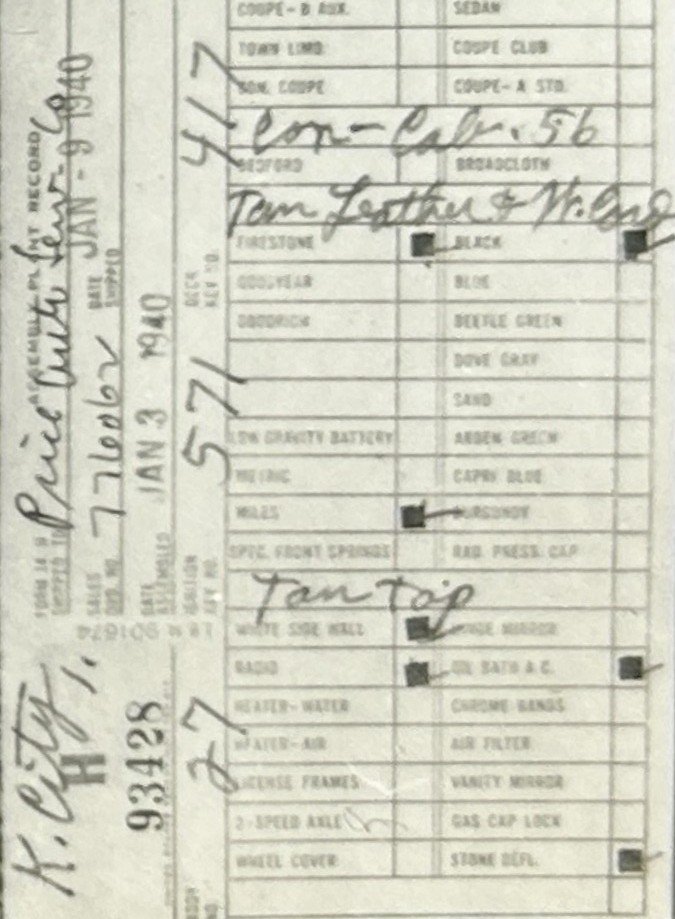 COUPE-B AUX. SEDAN
TOWN LIMO COUPE CLUB
CON. COUPE COUPE-A STD.
Con-Cab. 56
BEDFORD BROADCLOTH
Tan Leather & W. Cord
FIRESTONE BLACK
GOODYEAR BLUE
GOODRICH BEETLE GREEN
DOVE GRAY
SAND
LOW GRAVITY BATTERY ARDEN GREEN
METRIC CAPRI BLUE
MILES BURGUNDY
SPEC. FRONT SPRINGS RAD. PRESS. CAP
Tan Top
WHITE SIDE WALL HINGE MIRROR
RADIO OIL BATH A.C.
HEATER-WATER CHROME BANDS
HEATER-AIR AIR FILTER
LICENSE FRAMES VANITY MIRROR
2-SPEED AXLE GAS CAP LOCK
WHEEL COVER STONE DEFL.
ASSEMBLY PLANT RECORD
SHIPPED TO Price Auto Serv. Co
SALES ORD. NO. 776062 DATE SHIPPED JAN-9 1940
DATE ASSEMBLED JAN 3 1940
IGNITION KEY NO. 571 DECK KEY NO. 417
K. City,
H
93428
BODY NO. 27